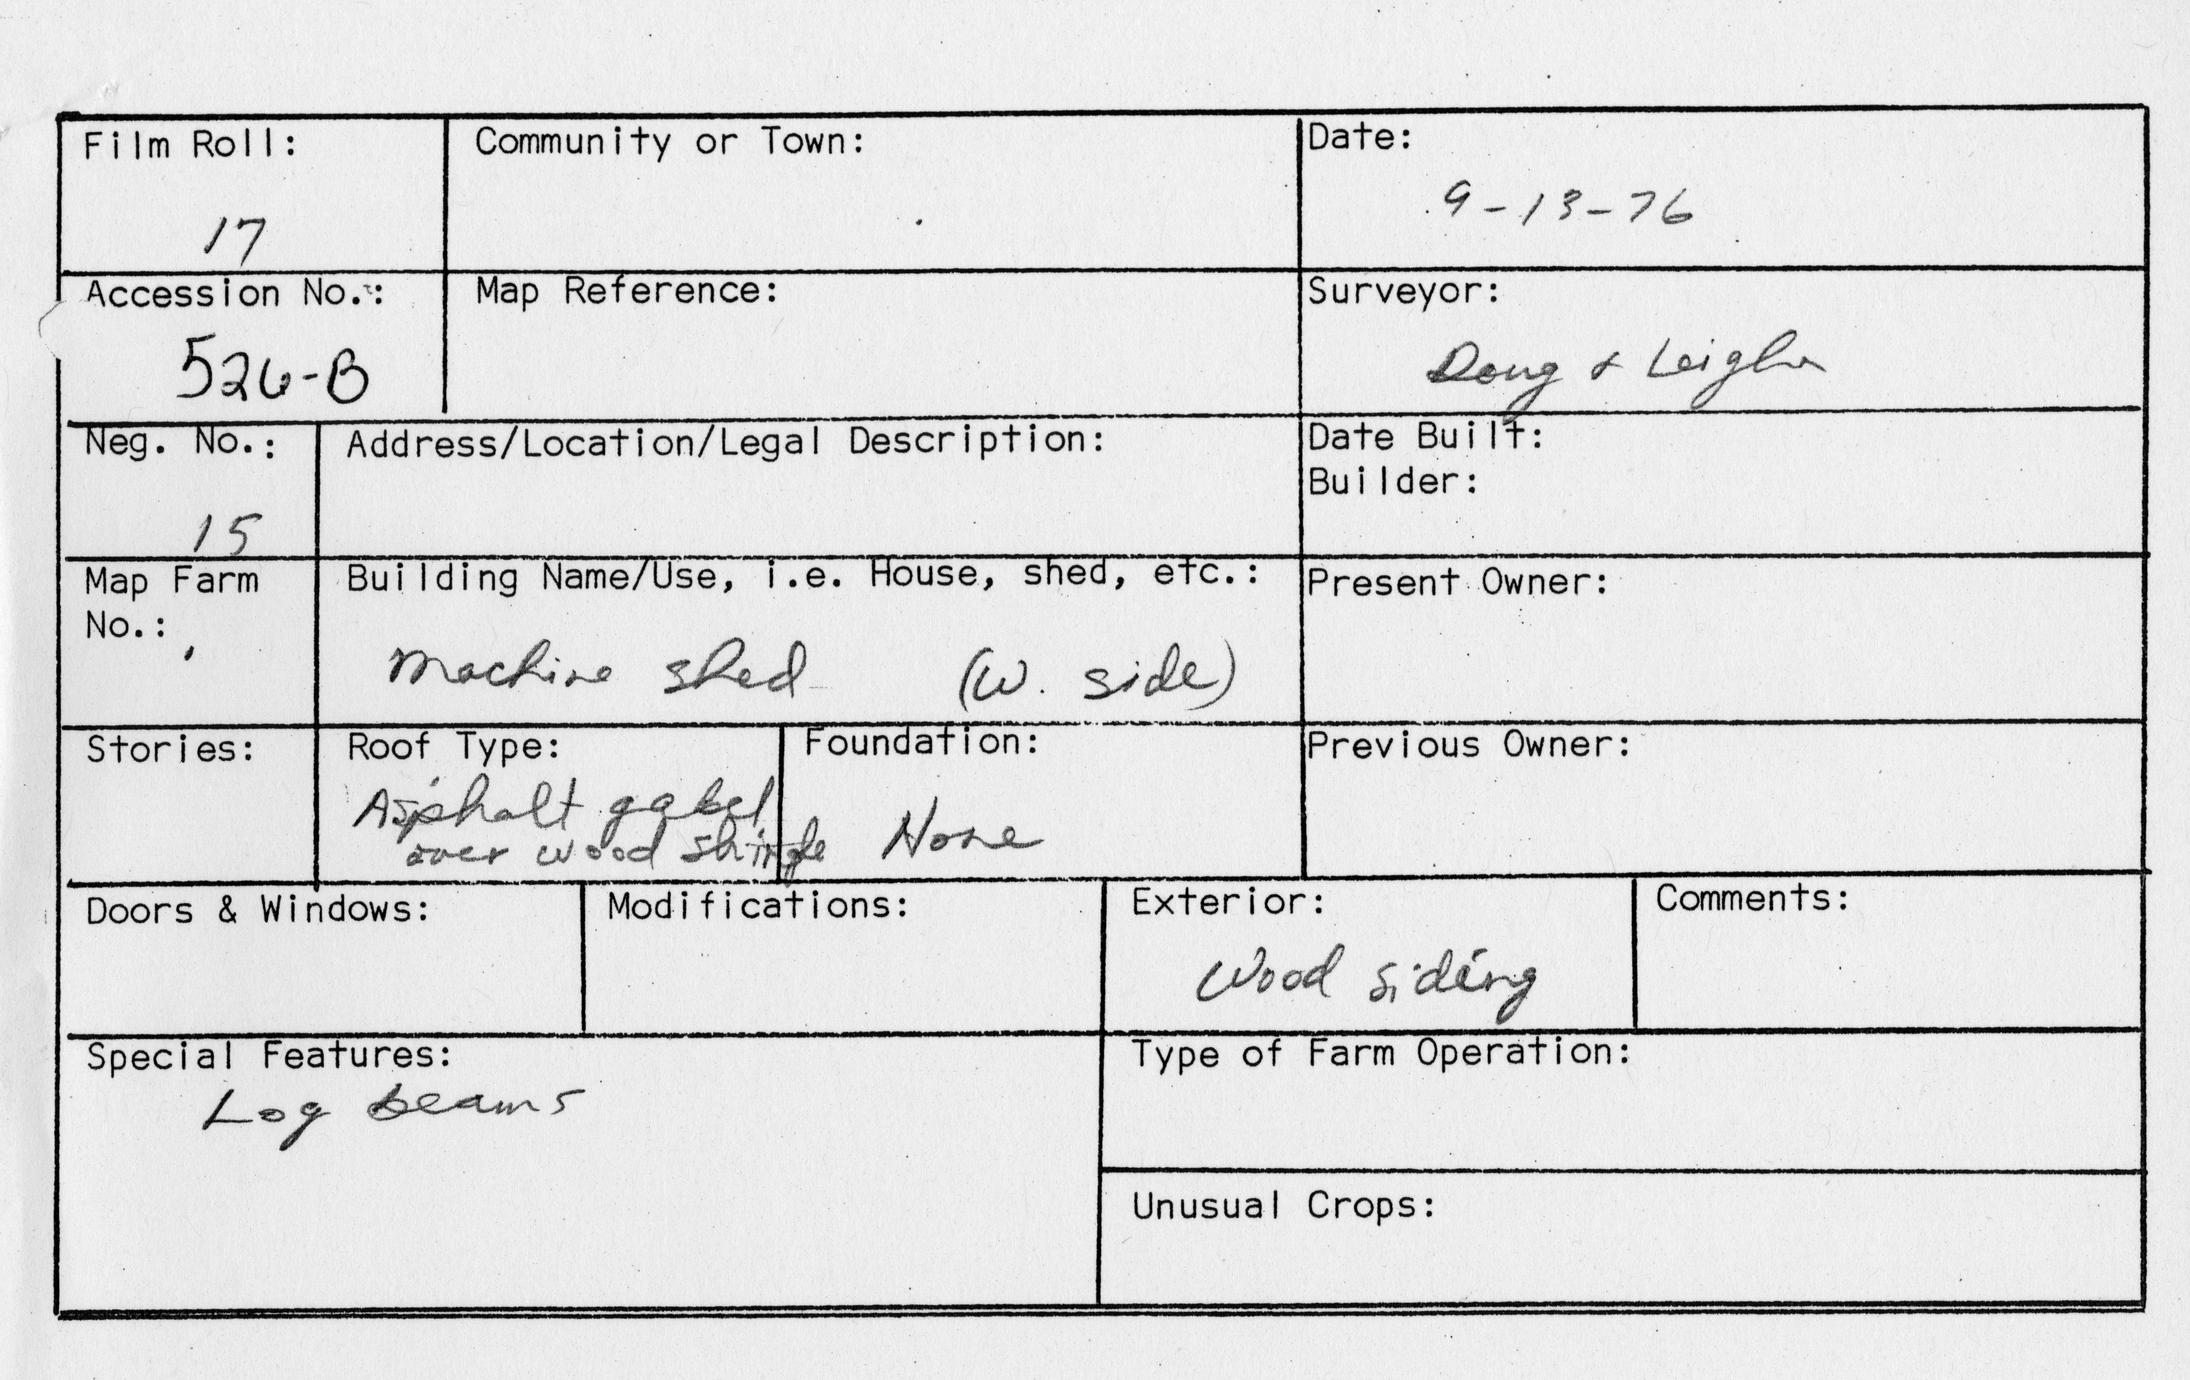 Film Roll:
17
Community or Town:
Date:
9-13-76
Accession No.:
526-B
Map Reference:
Surveyor:
Doug & Leigh
Neg. No.:
15
Address/Location/Legal Description:
Date Built:
Builder:
Map Farm
No.:
Building Name/Use, i.e. House, shed, etc.:
Machine shed (W. side)
Present Owner:
Stories:
Roof Type:
Asphalt gabel
over wood shingle
Foundation:
None
Previous Owner:
Doors & Windows:
Modifications:
Exterior:
Wood siding
Comments:
Special Features:
Log beams
Type of Farm Operation:
Unusual Crops: